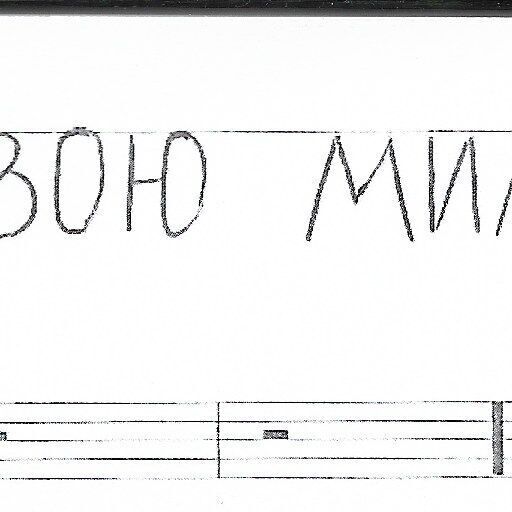 ВОЮ МИ